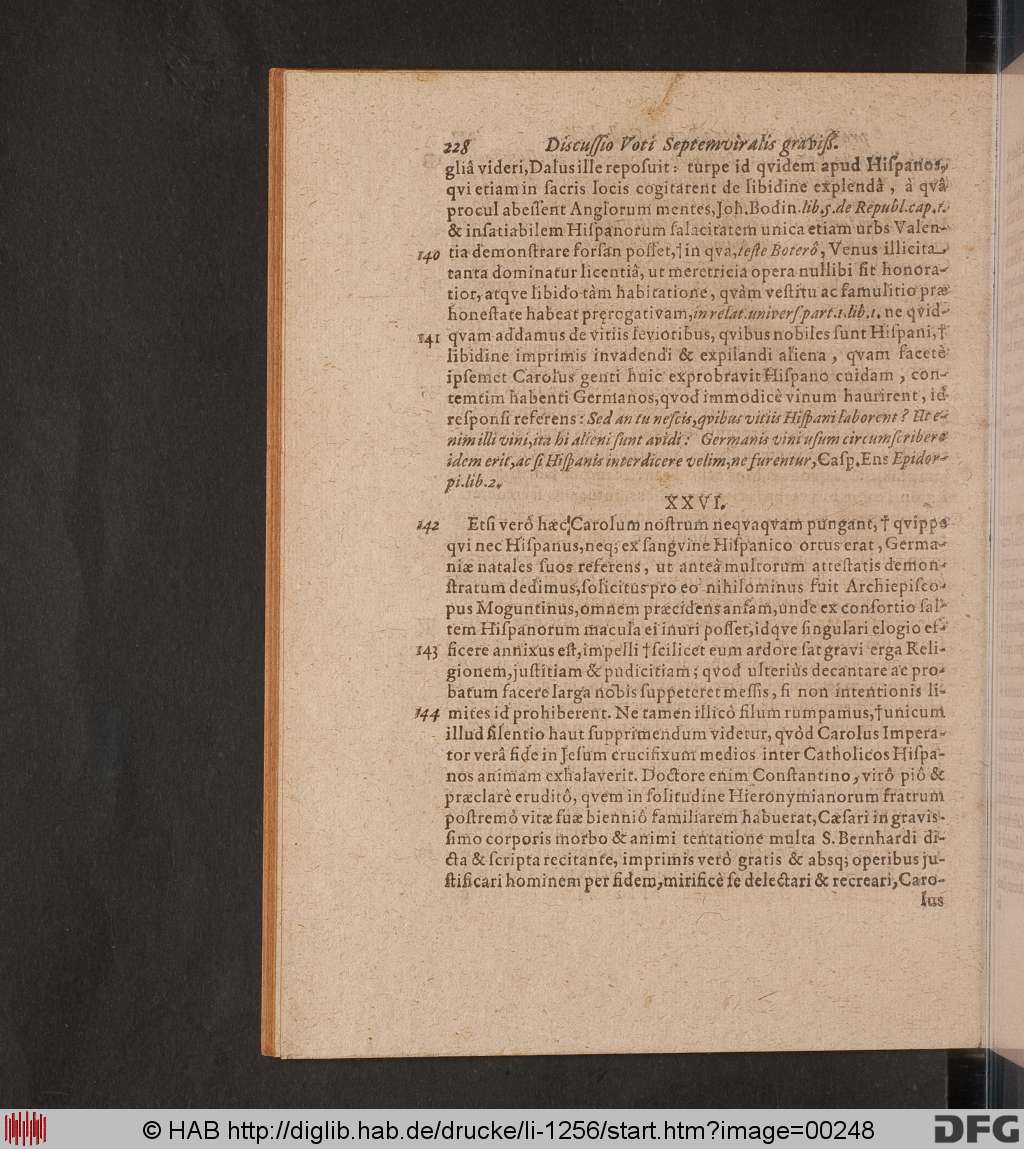 228 Discuſſio Voti Septemviralis graviſſ.
gliâ videri, Dalus ille repoſuit: turpe id qvidem apud Hiſpanos,
qvi etiam in ſacris locis cogitarent de libidine explendâ, à qvâ
procul abeſſent Anglorum mentes, Joh. Bodin. lib. 5. de Republ. cap. 1.
& inſatiabilem Hiſpanorum ſalacitatem unica etiam urbs Valen-
140 tia demonſtrare forſan poſſet, † in qva, teſte Boterô, Venus illicita
tanta dominatur licentiâ, ut meretricia opera nullibi ſit honora-
tior, atqve libido tàm habitatione, qvàm veſtitu ac famulitio præ
honeſtate habeat pręrogativam, in relat. univerſ. part. 1. lib. 1. ne qvid-
141 qvam addamus de vitiis levioribus, qvibus nobiles ſunt Hiſpani, †
libidine imprimis invadendi & expilandi aliena, qvam facetè
ipſemet Carolus genti huic exprobravit Hiſpano cuidam, con-
temtim habenti Germanos, qvod immodicè vinum haurirent, id
reſponſi referens: Sed an tu neſcis, qvibus vitiis Hiſpani laborent? Ut e-
nim illi vini, ita hi alieni ſunt avidi: Germanis vini uſum circumſcribere
idem erit, ac ſi Hiſpanis interdicere velim, ne furentur, Caſp. Ens Epidor-
pi. lib. 2.
XXVI.
142 Etſi verò hæc Carolum noſtrum neqvaqvam pungant, † qvippe
qvi nec Hiſpanus, neq; ex ſangvine Hiſpanico ortus erat, Germa-
niæ natales ſuos referens, ut anteà multorum atteſtatis demon-
ſtratum dedimus, ſolicitus pro eo nihilominus fuit Archiepiſco-
pus Moguntinus, omnem præcidens anſam, unde ex conſortio ſal-
tem Hiſpanorum macula ei inuri poſſet, idqve ſingulari elogio ef-
143 ficere annixus eſt, impelli † ſcilicet eum ardore ſat gravi erga Reli-
gionem, juſtitiam & pudicitiam; qvod ulteriùs decantare ac pro-
batum facere larga nobis ſuppeteret meſſis, ſi non intentionis li-
144 mites id prohiberent. Ne tamen illicò filum rumpamus, † unicum
illud ſilentio haut ſupprimendum videtur, qvòd Carolus Impera-
tor verâ fide in Jeſum crucifixum medios inter Catholicos Hiſpa-
nos animam exhalaverit. Doctore enim Conſtantino, virô piô &
præclarè eruditô, qvem in ſolitudine Hieronymianorum fratrum
poſtremô vitæ ſuæ bienniô familiarem habuerat, Cæſari in gravis-
ſimo corporis morbo & animi tentatione multa S. Bernhardi di-
cta & ſcripta recitante, imprimis verò gratis & absq; operibus ju-
ſtificari hominem per fidem, mirificè ſe delectari & recreari, Caro-
lus
© HAB http://diglib.hab.de/drucke/li-1256/start.htm?image=00248
DFG